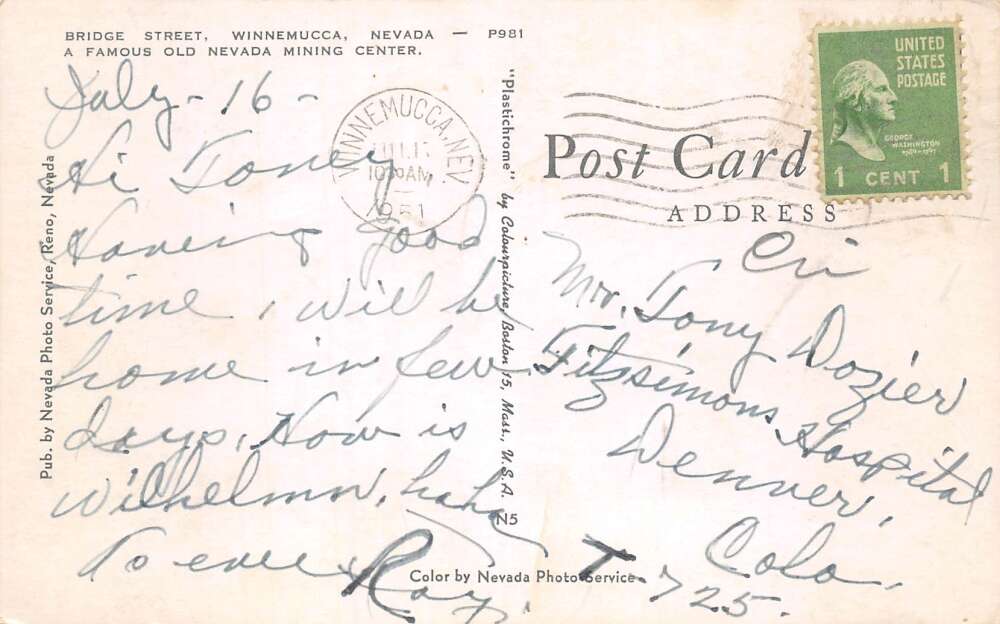 BRIDGE STREET, WINNEMUCCA, NEVADA — P981
A FAMOUS OLD NEVADA MINING CENTER.
July - 16 -
Hi Toney
Having good
time, will be
home in few
days. How is
Wilhelmn, haha
Ray.
Pub. by Nevada Photo Service, Reno, Nevada
"Plastichrome" by Colourpicture, Boston 15, Mass., U.S.A.
N5
Color by Nevada Photo Service
WINNEMUCCA, NEV.
AM
1951
Post Card
ADDRESS
UNITED
STATES
POSTAGE
GEORGE
WASHINGTON
1 CENT 1
Mr. Tony Dozier
Fitzsimons Hospital
Denver,
Colo.
T-725.